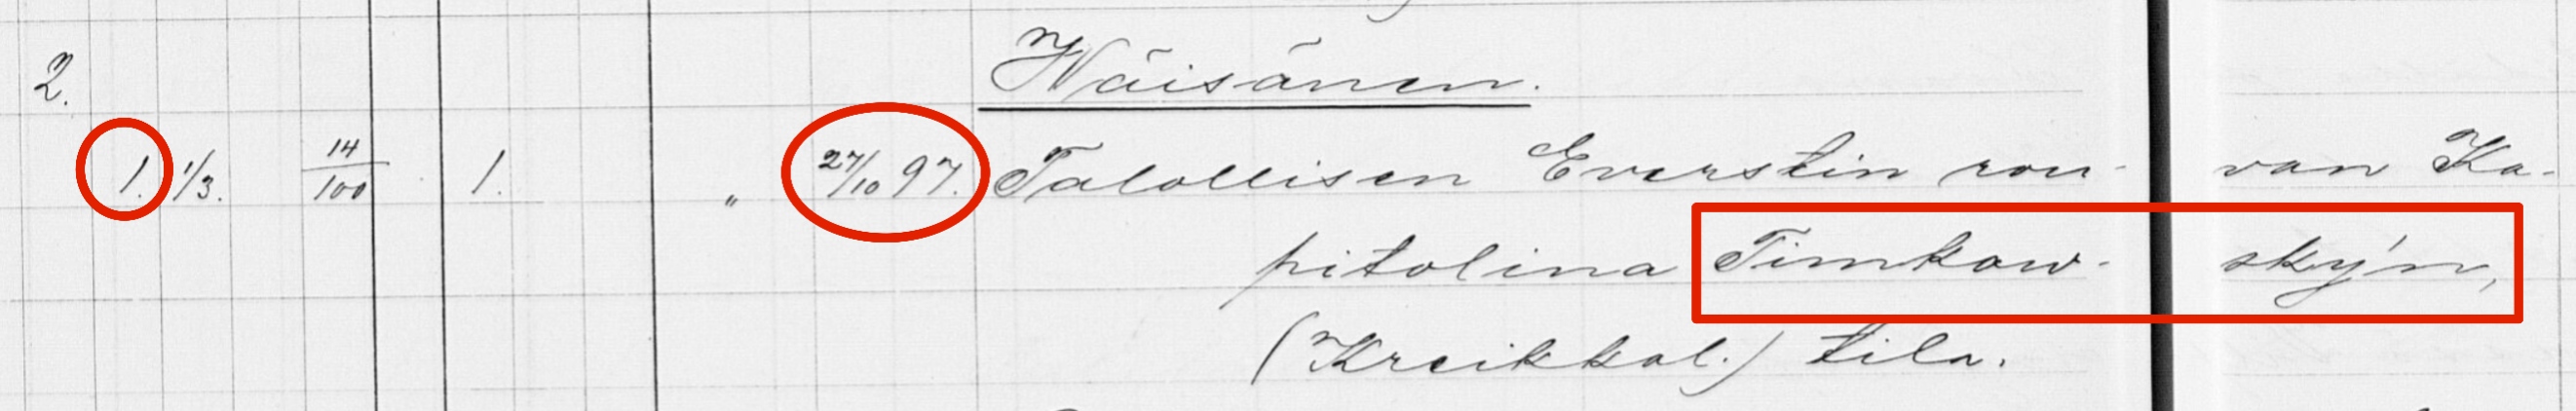 2. Wäisänen.
1. 1/3. 14/100 1. „ 27/10 97. Talollisen Everstin rou- van Ka-
pitolina Timkow- skýn,
(Kreikkal.) tila.